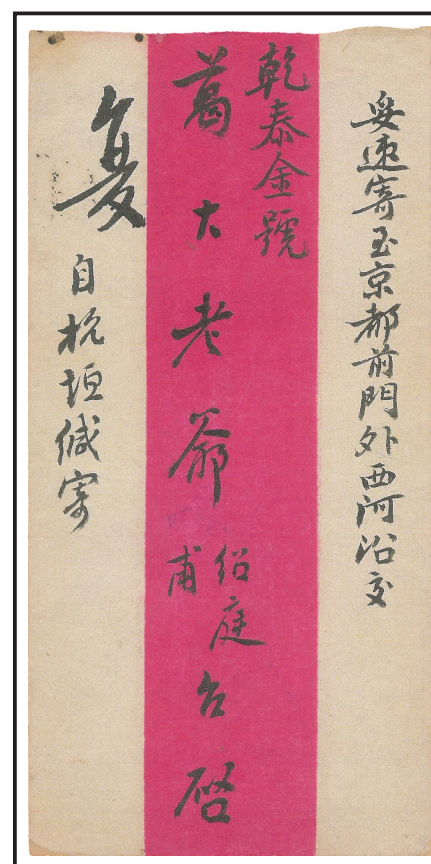 妥速寄至京都前門外西河沿交
乾泰金號
葛大老爺
侣庭
甫
台啓
复
自杭垣缄寄